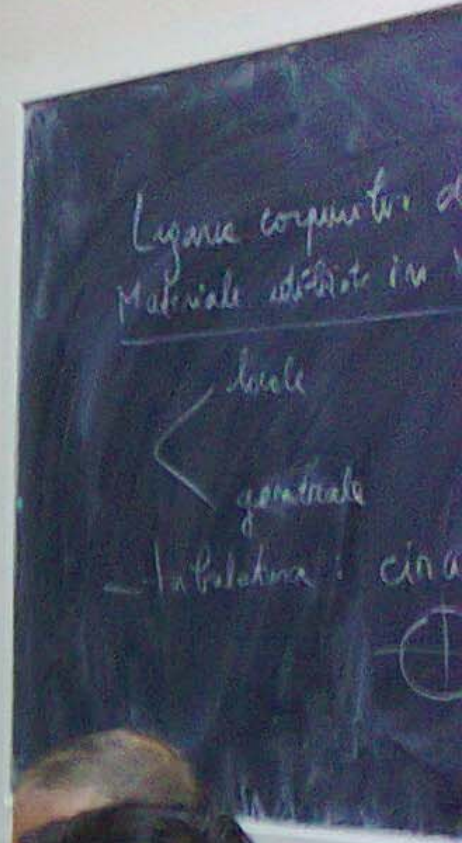 Legarea corpurilor d
Materiale utilizate în
locale
generale
- Tubulatura : cin a